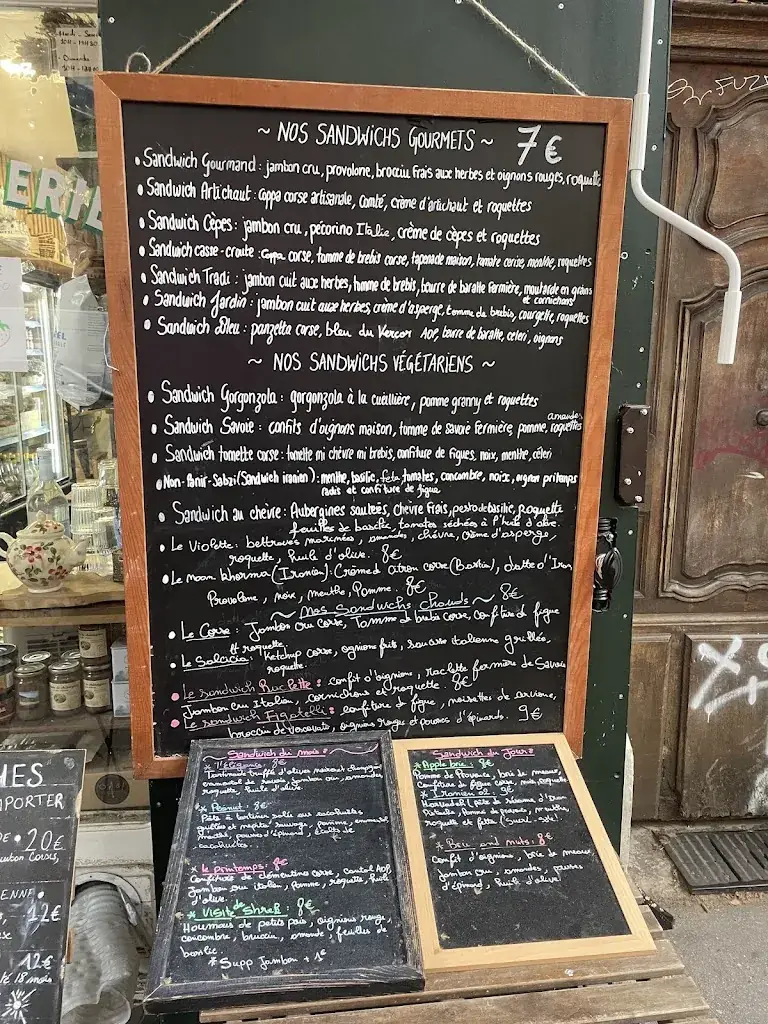 ERIE
~ NOS SANDWiCHS GOURMETS ~ 7€
• Sandwich Gourmand : jambon cru, provolone, brocciu frais aux herbes et oignons rouges, roquette
• Sandwich Artichaut : Coppa corse artisanale, comté, crème d'artichaut et roquettes
• Sandwich Cèpes : jambon cru, pécorino Italie, crème de cèpes et roquettes
• Sandwich casse-croute : Coppa corse, tomme de brebis corse, tapenade maison, tomate cerise, menthe, roquettes
• Sandwich Tradi : jambon cuit aux herbes, tomme de brebis, beurre de baratte fermière, moutarde en grains
et cornichons
• Sandwich Jardin : jambon cuit aux herbes, crème d'asperge, tomme de brebis, courgette, roquettes
• Sandwich Bleu : panzetta corse, bleu du Vercor AOP, beurre de baratte, celeri, oignons
~ NOS SANDWICHS VÉGÉTARIENS ~
• Sandwich Gorgonzola : gorgonzola à la cuillière, pomme granny et roquettes
amandes
• Sandwich Savoie : confits d'oignons maison, tomme de savoie fermière, pomme, roquettes
• Sandwich tomette corse : tomette mi chèvre mi brebis, confiture de figues, noix, menthe, céleri
• Non-Panir-Sabzi (Sandwich iranien) : menthe, basilic, feta, tomates, concombre, noix, oignon printemps
radis et confiture de figue
• Sandwich au chèvre : Aubergines sautées, chèvre frais, pesto de basilic, Roquette
feuilles de basilic, tomates séchées à l'huile d'olive.
• Le Violette : bettraves marinées, amandes, chèvre, crème d'asperge,
roquette, huile d'olive. 8€
• Le Moon Khorma (Iranien) : Crème d citron corse (Bastia), datte d'Iran
Provolone, noix, menthe, Pomme. 8€
~ Nos Sandwichs chauds ~ 8€
• Le Corse : Jambon cru corse, Tomme de brebis corse, confiture de figue
et roquette
• Le Salsicia : Ketchup corse, oignons frits, saucisse italienne grillée,
roquette.
• Le sandwich Raclette : confit d'oignons, raclette fermière de Savoie
Jambon cru Italien, cornichons et roquette. 8€
• Le sandwich Figatelli : confiture de figue, noisettes de cervione,
brocciu de Vescovato, oignons rouges et pousses d'épinards. 9€
Sandwich du mois :
* l'élégance : 8€
Tartinade truffé d'olives noires et champignons
emmental de savoie, jambon cru, amandes
roquette, huile d'olive.
* Peanut : 8€
Pâte à tartiner salée aux cacahuètes
* Le printemps : 8€
Confiture de clémentine corse, cantal AOP,
Jambon cru italien, Pomme, roquette, huile
d'olive.
* VISIT de Shref : 8€
Houmous de petits pois, oignions rouge,
concombre, bruccin, amande, feuilles de
basilic
* Supp Jambon + 1€
Sandwich du Jour :
* Apple brie : 8€
Pomme de Provence, brie de meaux,
Confiture de figue corse, noix, roquette
* Iranien 02 : 9€
roquette et feta (sucré-salé)
* Brie and nuts : 8€
Confit d'oignions, brie de meaux
jambon cru, amandes, pousses
d'épinard, huile d'olive
HES
MPORTER
20€
ENNE •
12€
12€
18 mois